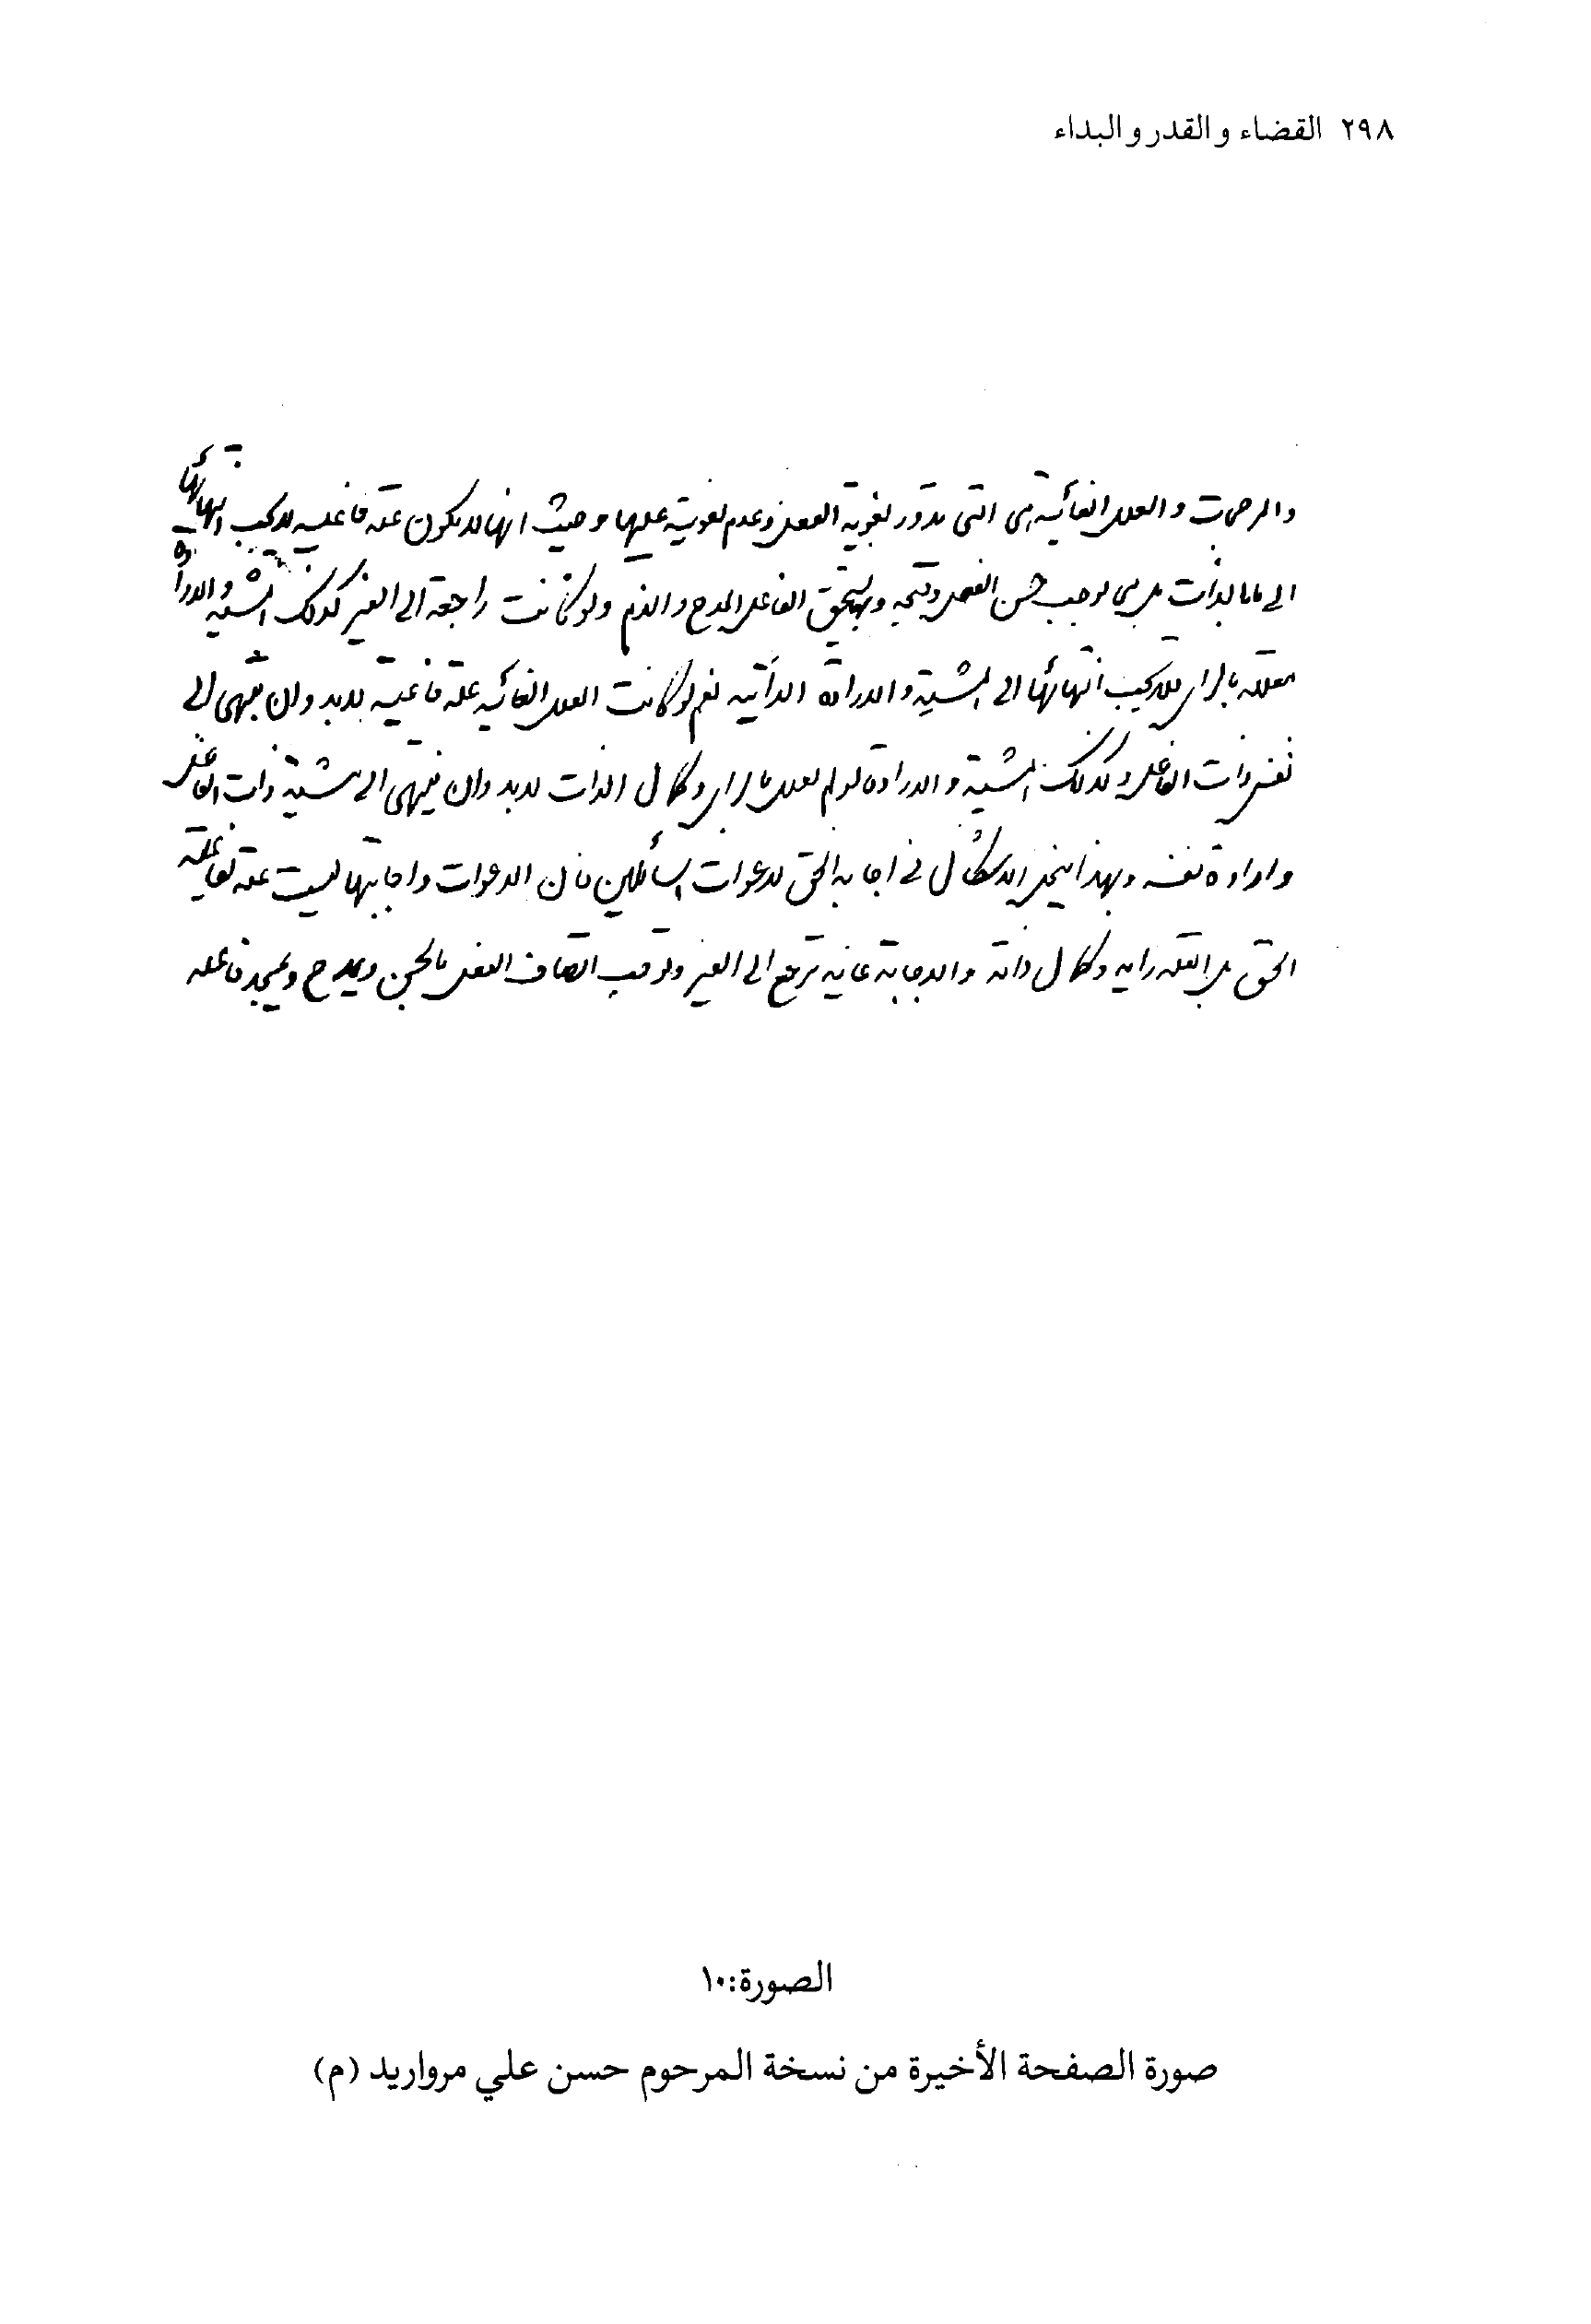 ٢٩٨ القضاء و القدر و البداء
والمرجحات والعلل الغائية هى التى تدور لغوية الفعل وعدم لغويته عليها وحيث انها لا يكون علة فاعلية لا يجب انتهائها
الى ما بالذات بل هى توجب حسن الفعل وقبحه وبها يستحق الفاعل المدح والذم ولو كانت راجعة الى الغير كذلك المشية والارادة
معللة بالراى فلا يجب انتهائها الى المشية والارادة الذاتية نعم لو كانت العلل الغائية علة فاعلية لابد وان ينتهى الى
نفس ذات الفاعل وكذلك المشية والارادة لو لم تعلل بالراى وكمال الذات لابد وان ينتهى الى مشية ذات الفاعل
وارادة نفسه وبهذا ينحل الاشكال فى اجابة الحق لدعوات السائلين فان الدعوات واجابتها ليست علة لفاعلية
الحق بل العلة رايه وكمال ذاته والاجابة غاية ترجع الى الغير وتوجب اتصاف الفعل بالحسن ويمدح ويمجد فاعله
الصورة: ١٠
صورة الصفحة الأخيرة من نسخة المرحوم حسن علي مرواريد (م)